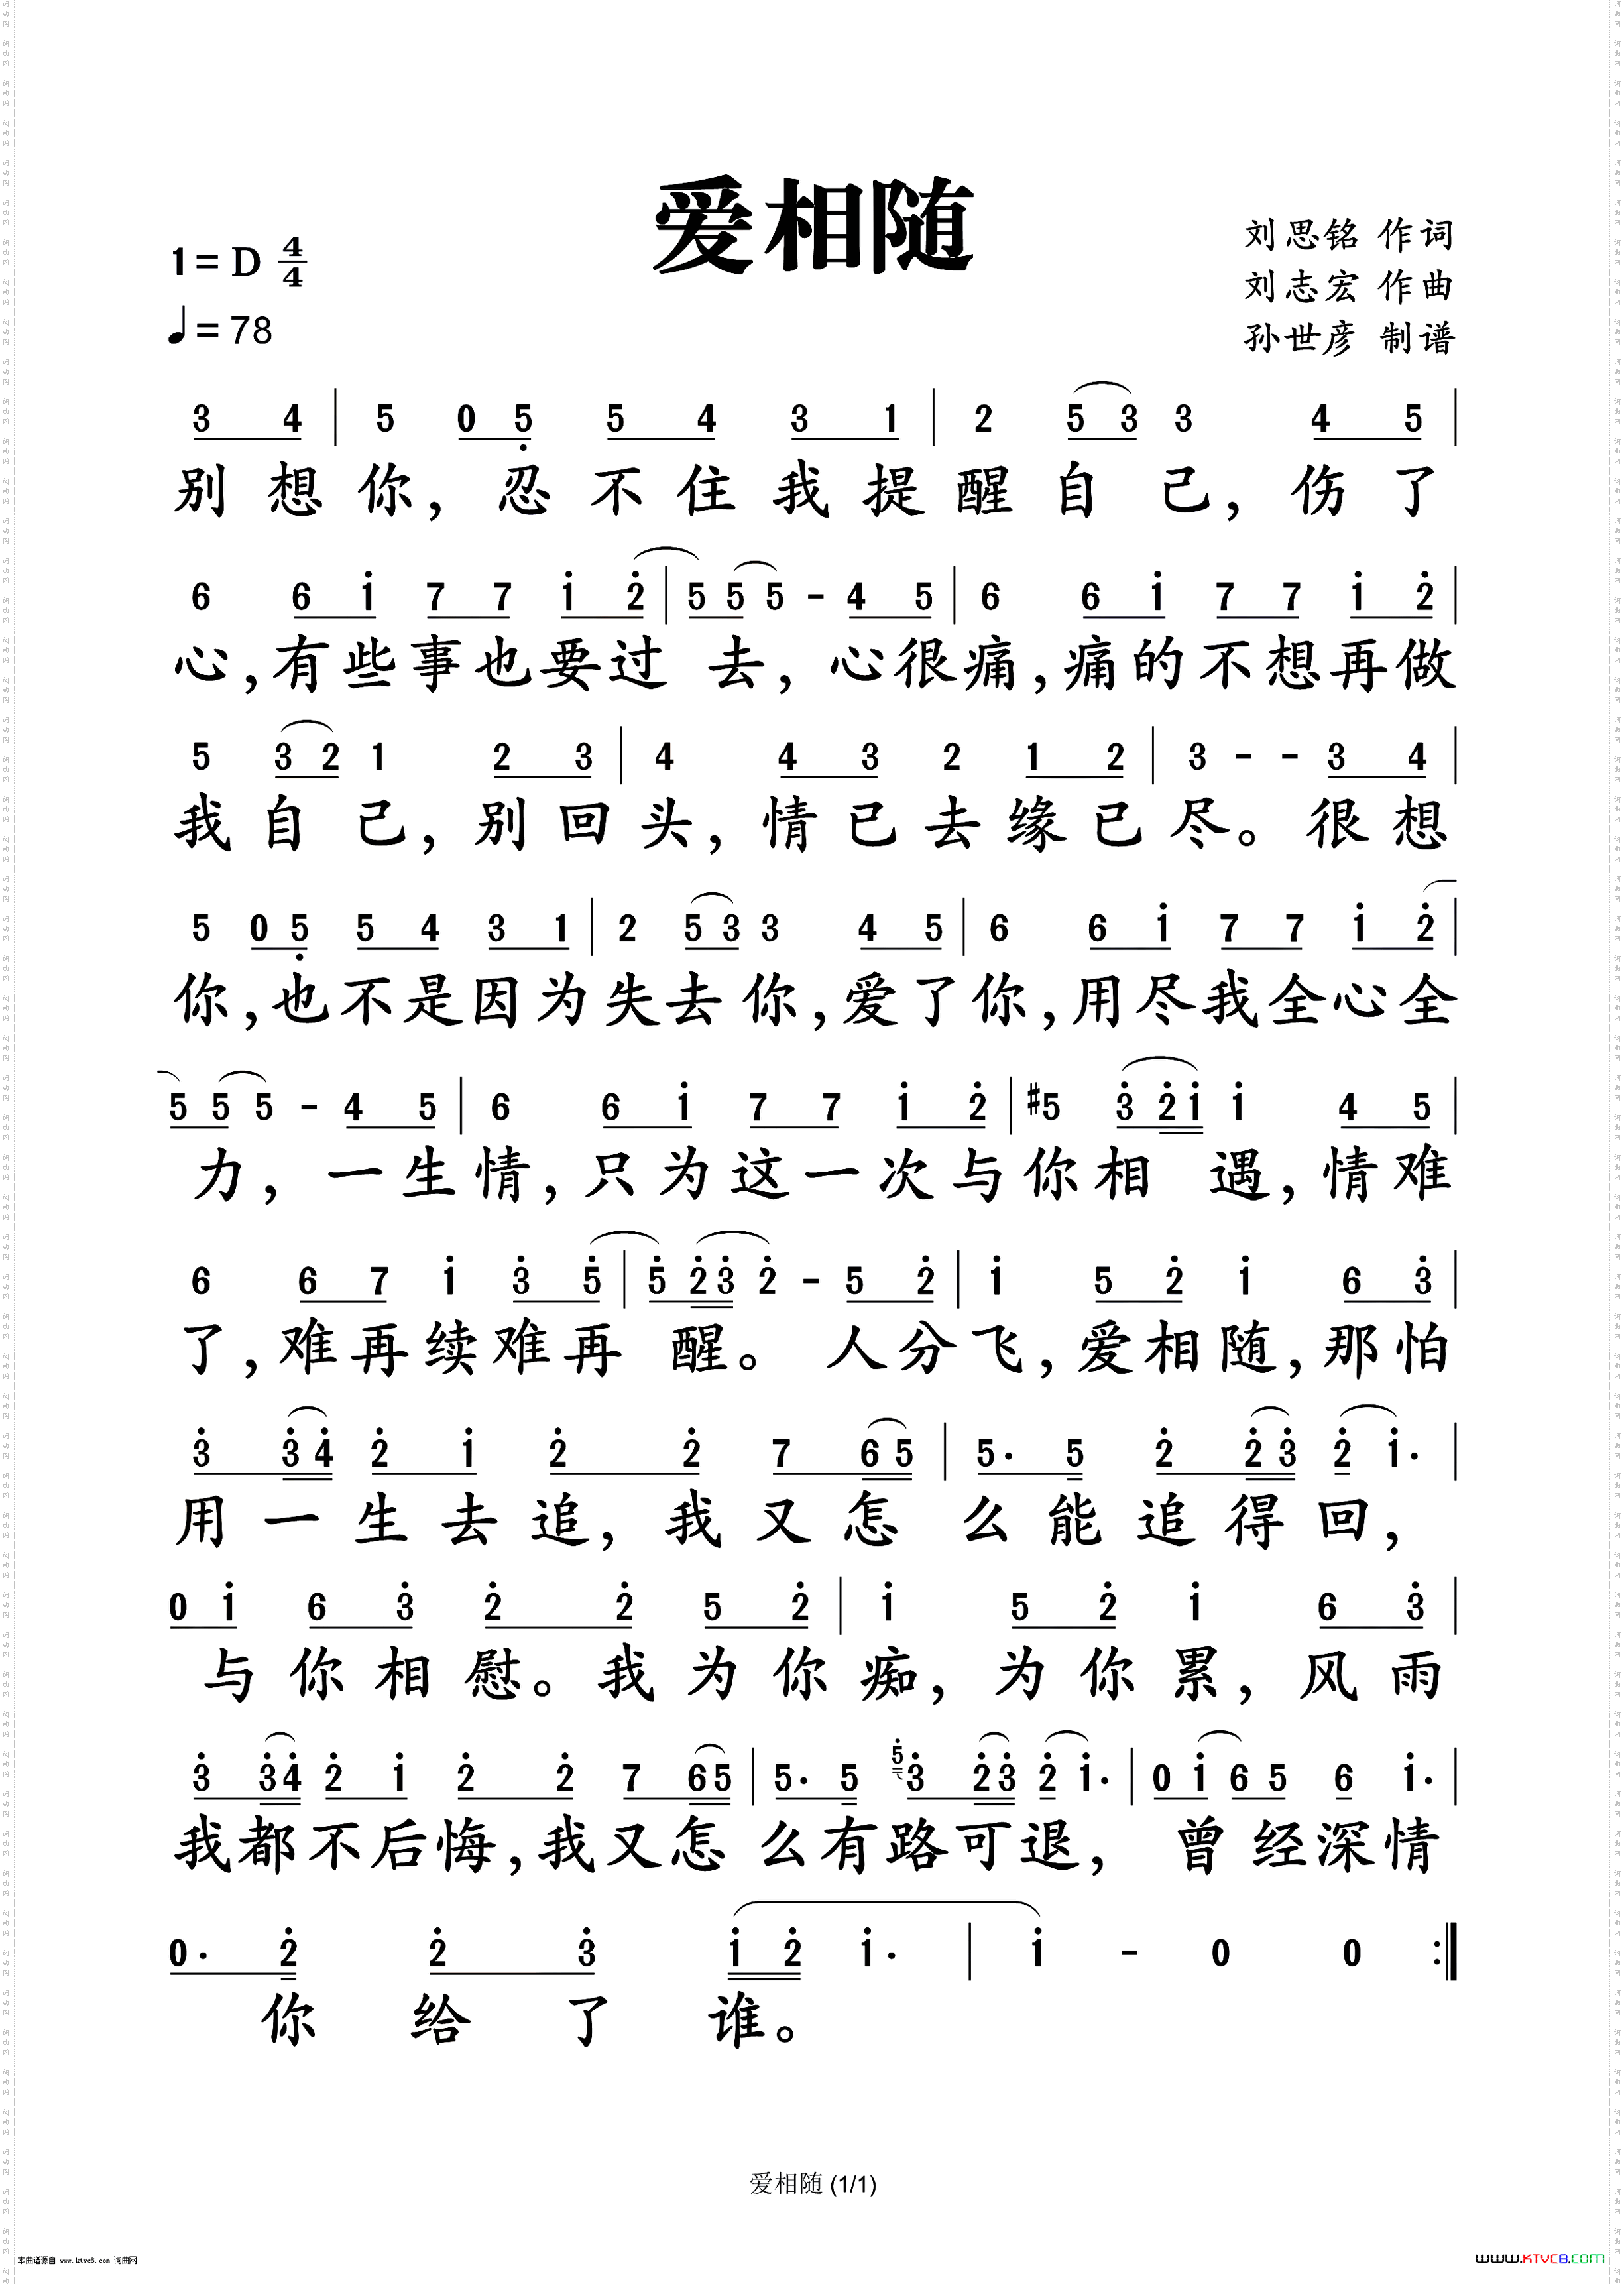 爱相随
1= D 4/4
刘思铭 作词
刘志宏 作曲
♩= 78
孙世彦 制谱
3 4 | 5 0 5̣ 5 4 3 1 | 2 5 3 3 4 5 |
别想你，忍不住我提醒自己，伤了
6 6 i 7 7 i 2̇ | 5 5 5 - 4 5 | 6 6 i 7 7 i 2̇ |
心，有些事也要过去，心很痛，痛的不想再做
5 3 2 1 2 3 | 4 4 3 2 1 2 | 3 - - 3 4 |
我自己，别回头，情已去缘已尽。很想
5 0 5̣ 5 4 3 1 | 2 5 3 3 4 5 | 6 6 i 7 7 i 2̇ |
你，也不是因为失去你，爱了你，用尽我全心全
5 5 5 - 4 5 | 6 6 i 7 7 i 2̇ | #5 3̇ 2̇ i i 4 5 |
力，一生情，只为这一次与你相遇，情难
6 6 7 i 3̇ 5̇ | 5̇ 2̇ 3̇ 2̇ - 5 2̇ | i 5 2̇ i 6 3̇ |
了，难再续难再醒。人分飞，爱相随，那怕
3̇ 3̇ 4̇ 2̇ i 2̇ 2̇ 7 6 5 | 5· 5 2̇ 2̇ 3̇ 2̇ i· |
用一生去追，我又怎么能追得回，
0 i 6 3̇ 2̇ 2̇ 5 2̇ | i 5 2̇ i 6 3̇ |
与你相慰。我为你痴，为你累，风雨
3̇ 3̇ 4̇ 2̇ i 2̇ 2̇ 7 6 5 | 5· 5 5̇ 3̇ 2̇ 3̇ 2̇ i· | 0 i 6 5 6 i· |
我都不后悔，我又怎么有路可退，曾经深情
0· 2̇ 2̇ 3̇ i 2̇ i· | i - 0 0 :|
你给了谁。
爱相随 (1/1)
本曲谱源自 www.ktvc8.com 词曲网
www.KTVC8.com